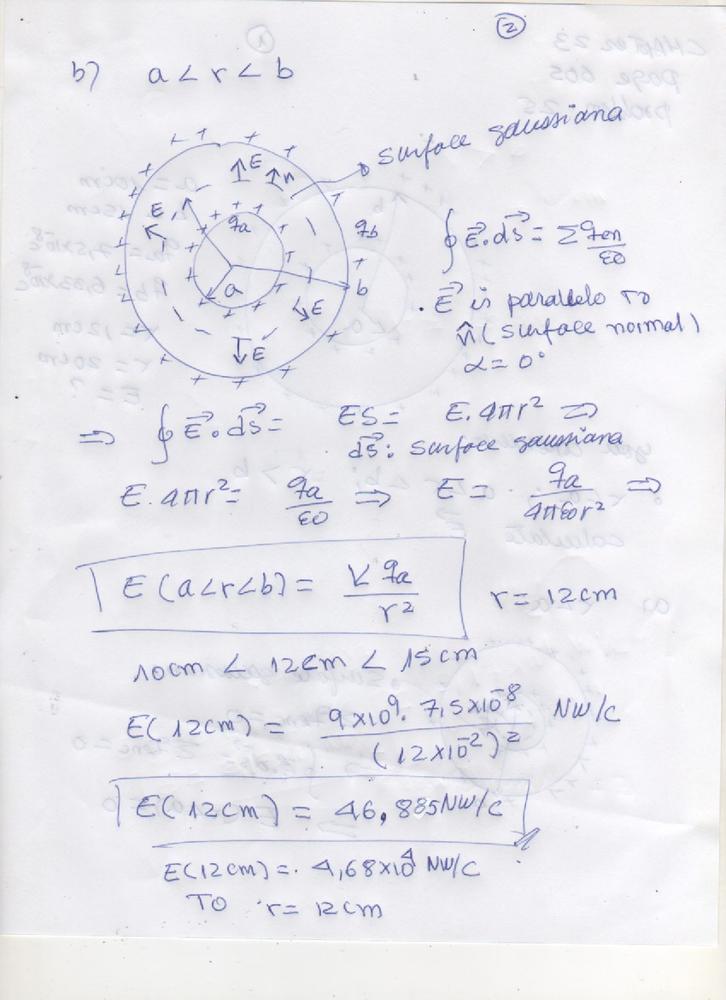 2
b) a < r < b
surface gaussiana
E
n
E
qa
qb
a
b
E
E
∮ E⃗ . dS⃗ = Σ qen/ε0
. E⃗ is parallelo to
n̂ (surface normal)
α = 0°
⇒ ∮ E⃗ . dS⃗ = ES = E. 4πr² ⇒
dS⃗ : surface gaussiana
E. 4πr² = qa/ε0 ⇒ E = qa/4πε0r² ⇒
E (a<r<b) = K qa/r² r = 12cm
10cm < 12cm < 15cm
E(12cm) = 9x10⁹. 7,5x10⁻⁸/(12x10⁻²)² NW/C
E(12cm) = 46,885NW/C
E(12cm) =. 4,68x10⁴ NW/C
TO r = 12cm